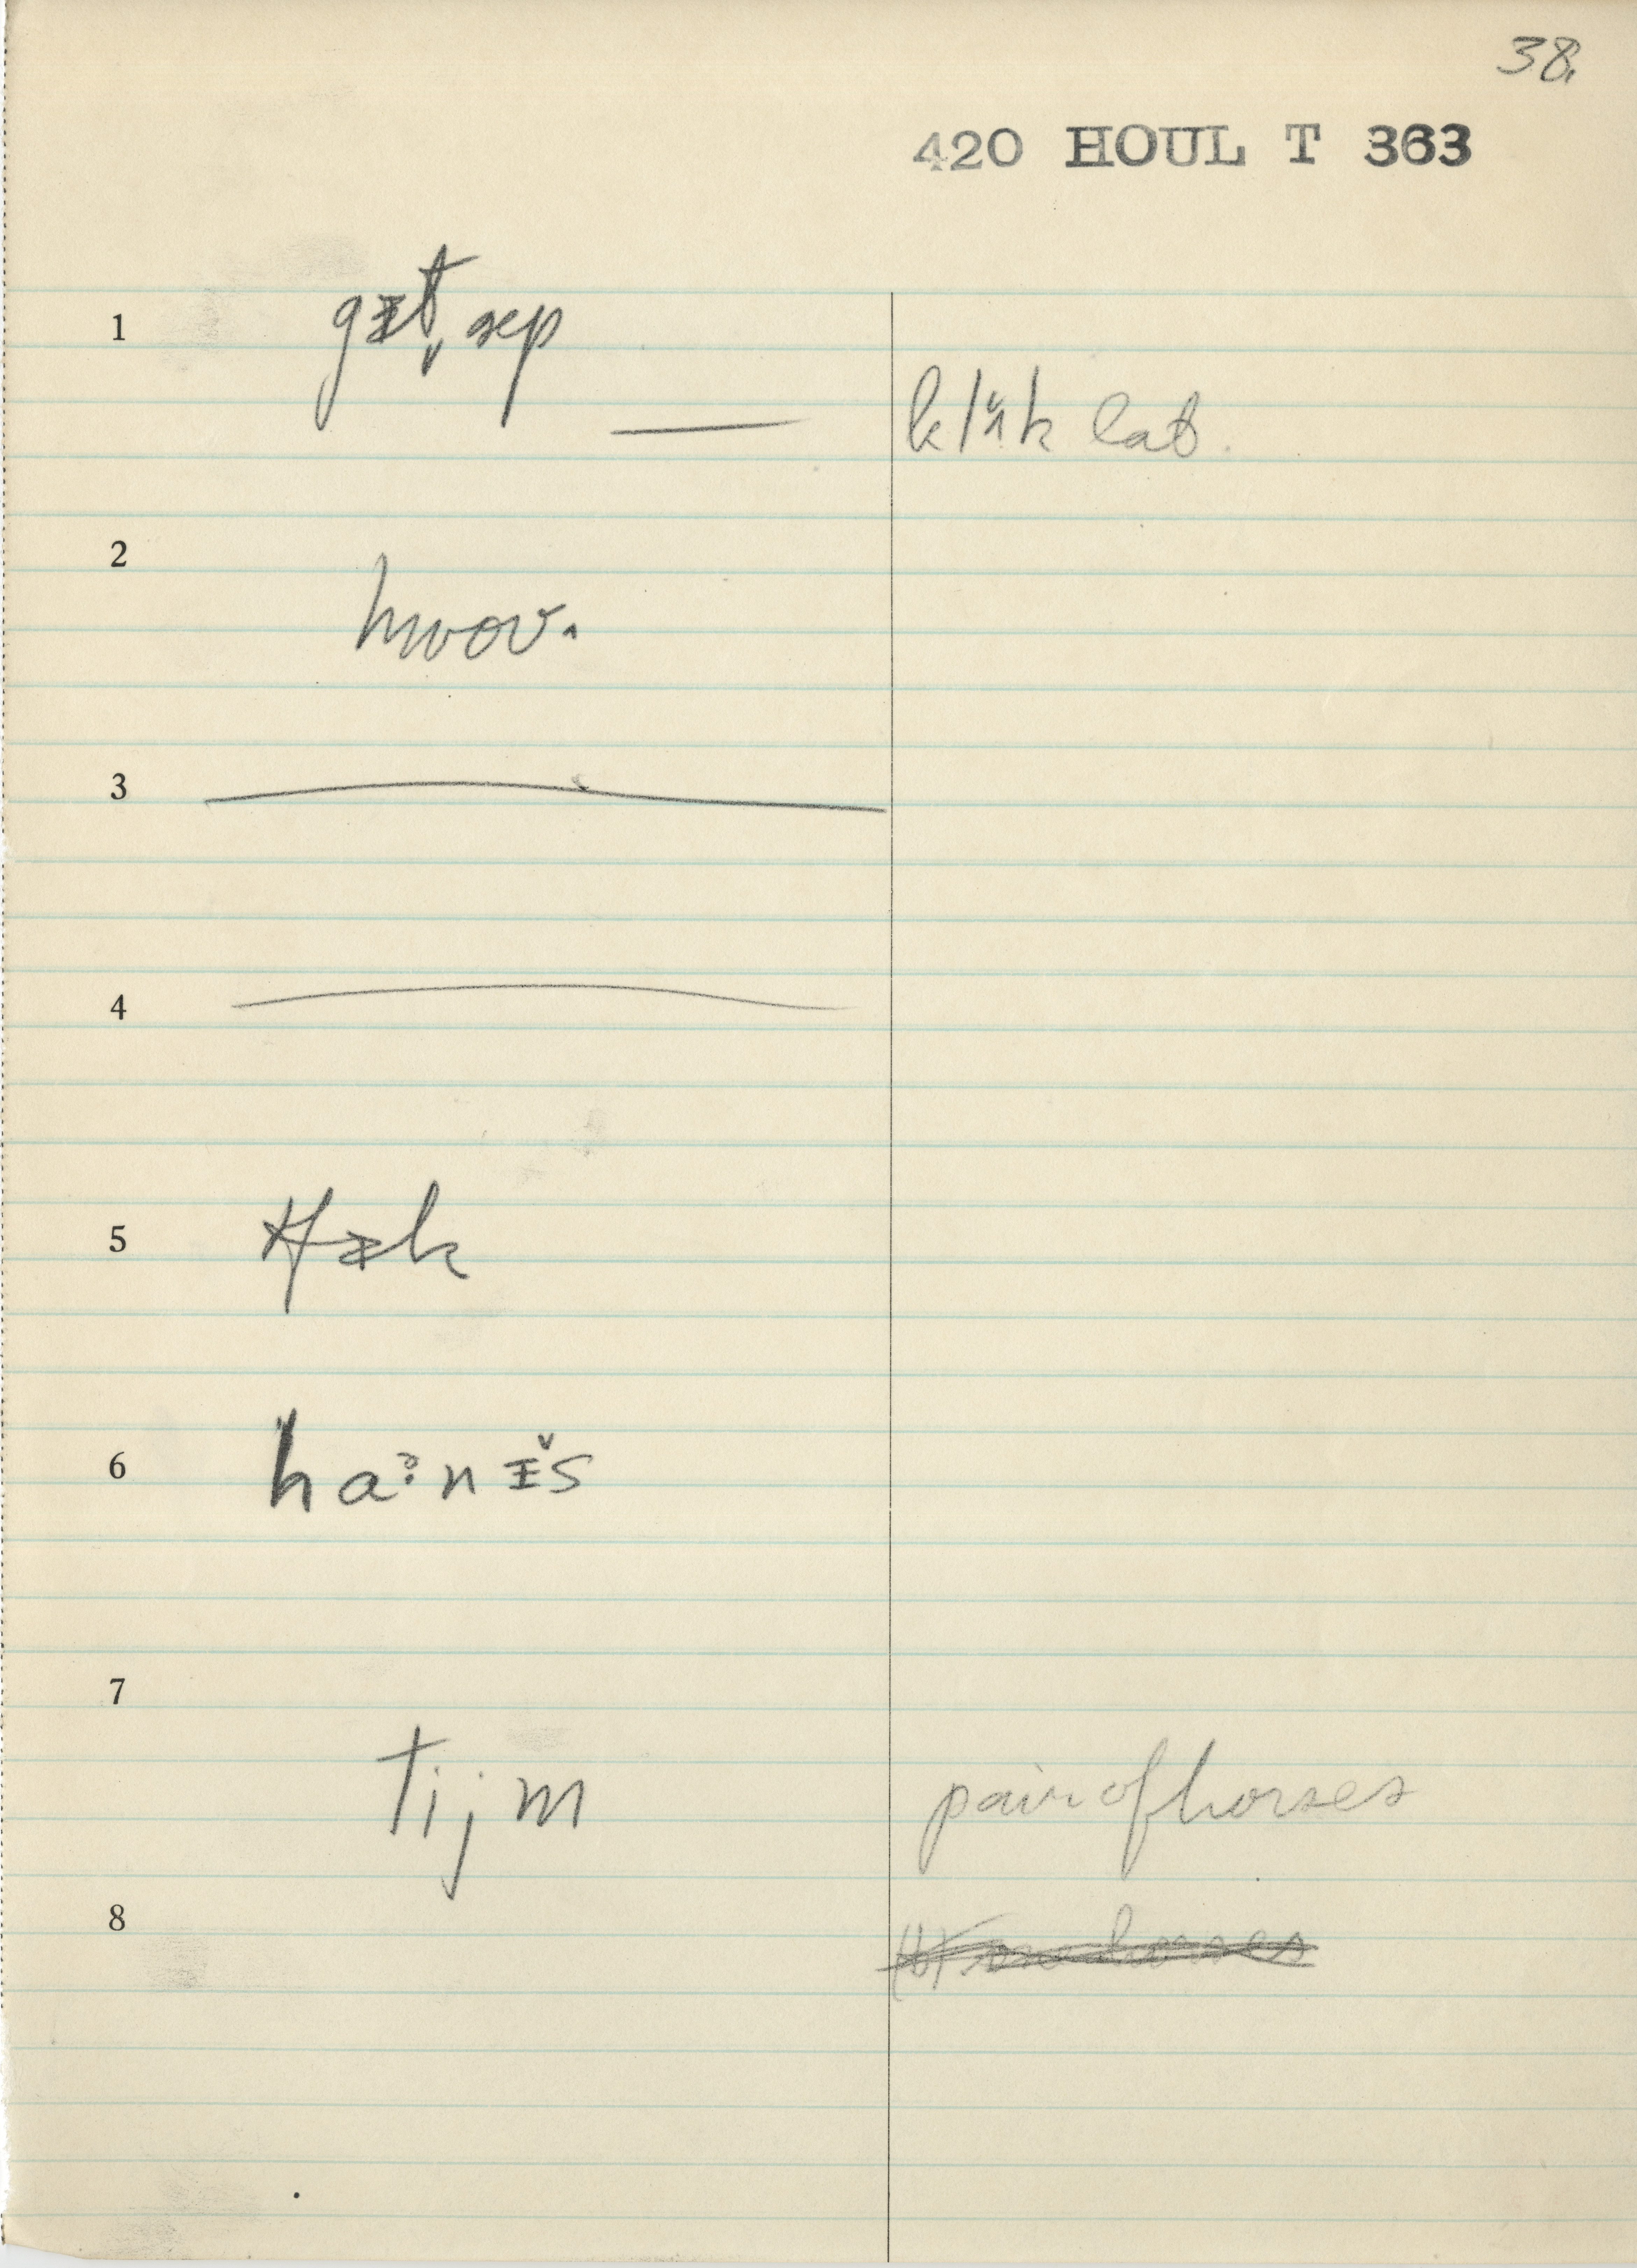 38.
420 HOUL T 363
1 gɪt̬ ʌp
klʌ̆k lat.
2
hwoʊ.
3
4
5
6 ha:nɪ̆s
7
tijm pair of horses
8